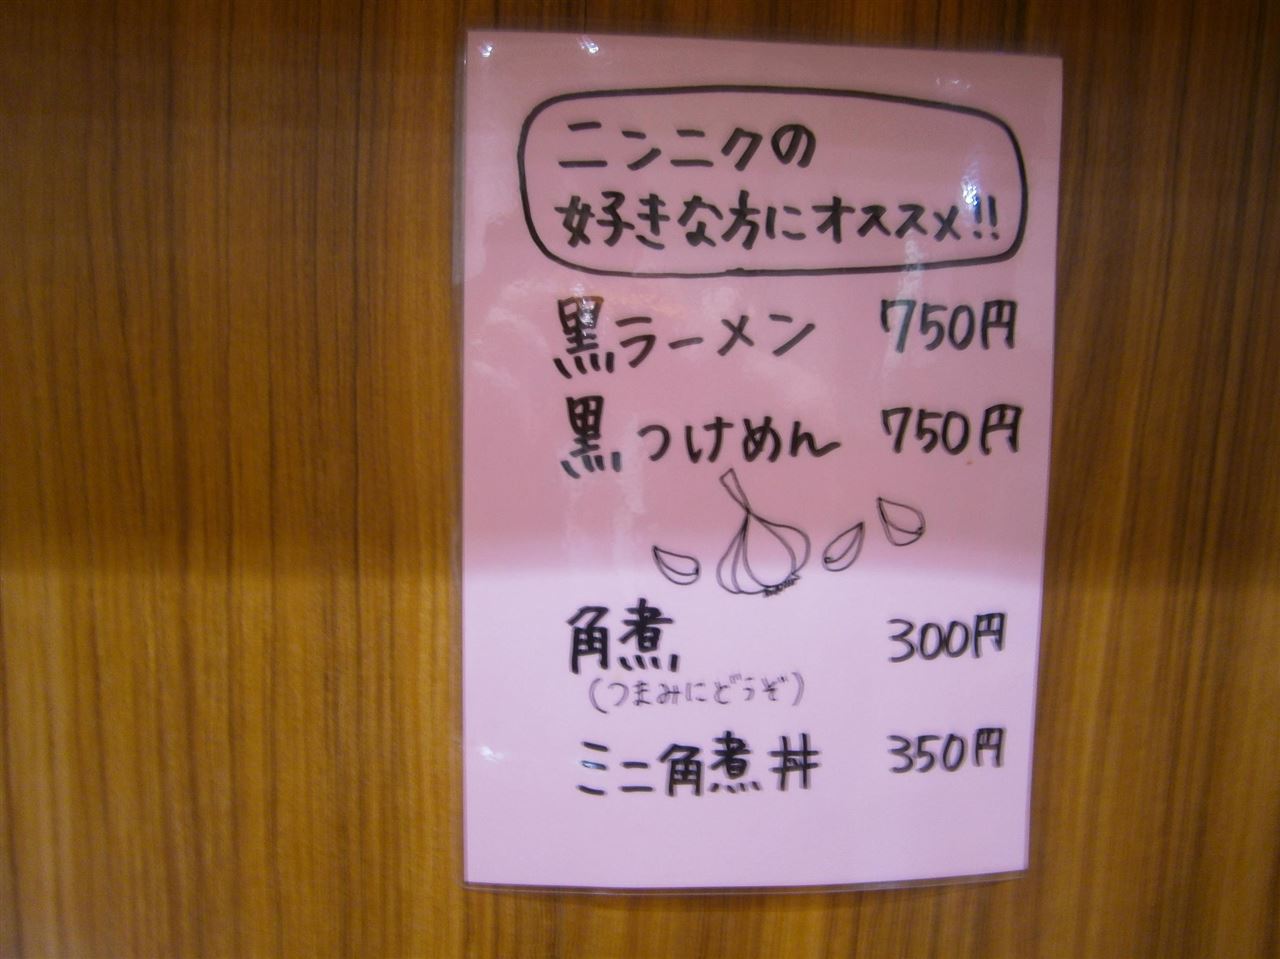 ニンニクの
好きな方にオススメ!!
黒ラーメン 750円
黒つけめん 750円
角煮 300円
(つまみにどうぞ)
ミニ角煮丼 350円